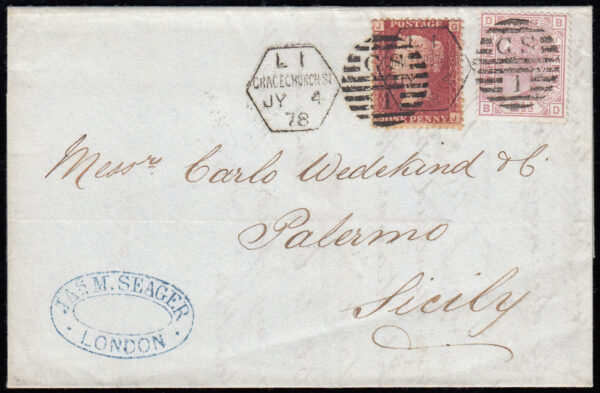 L 1
GRACECHURCH ST
JY 4
78
J G
POSTAGE
G S
1
ONE PENNY
J
D B
G S
1
B D
Messrs. Carlo Wedekind & Co.
Palermo
Sicily
JAS M. SEAGER
LONDON